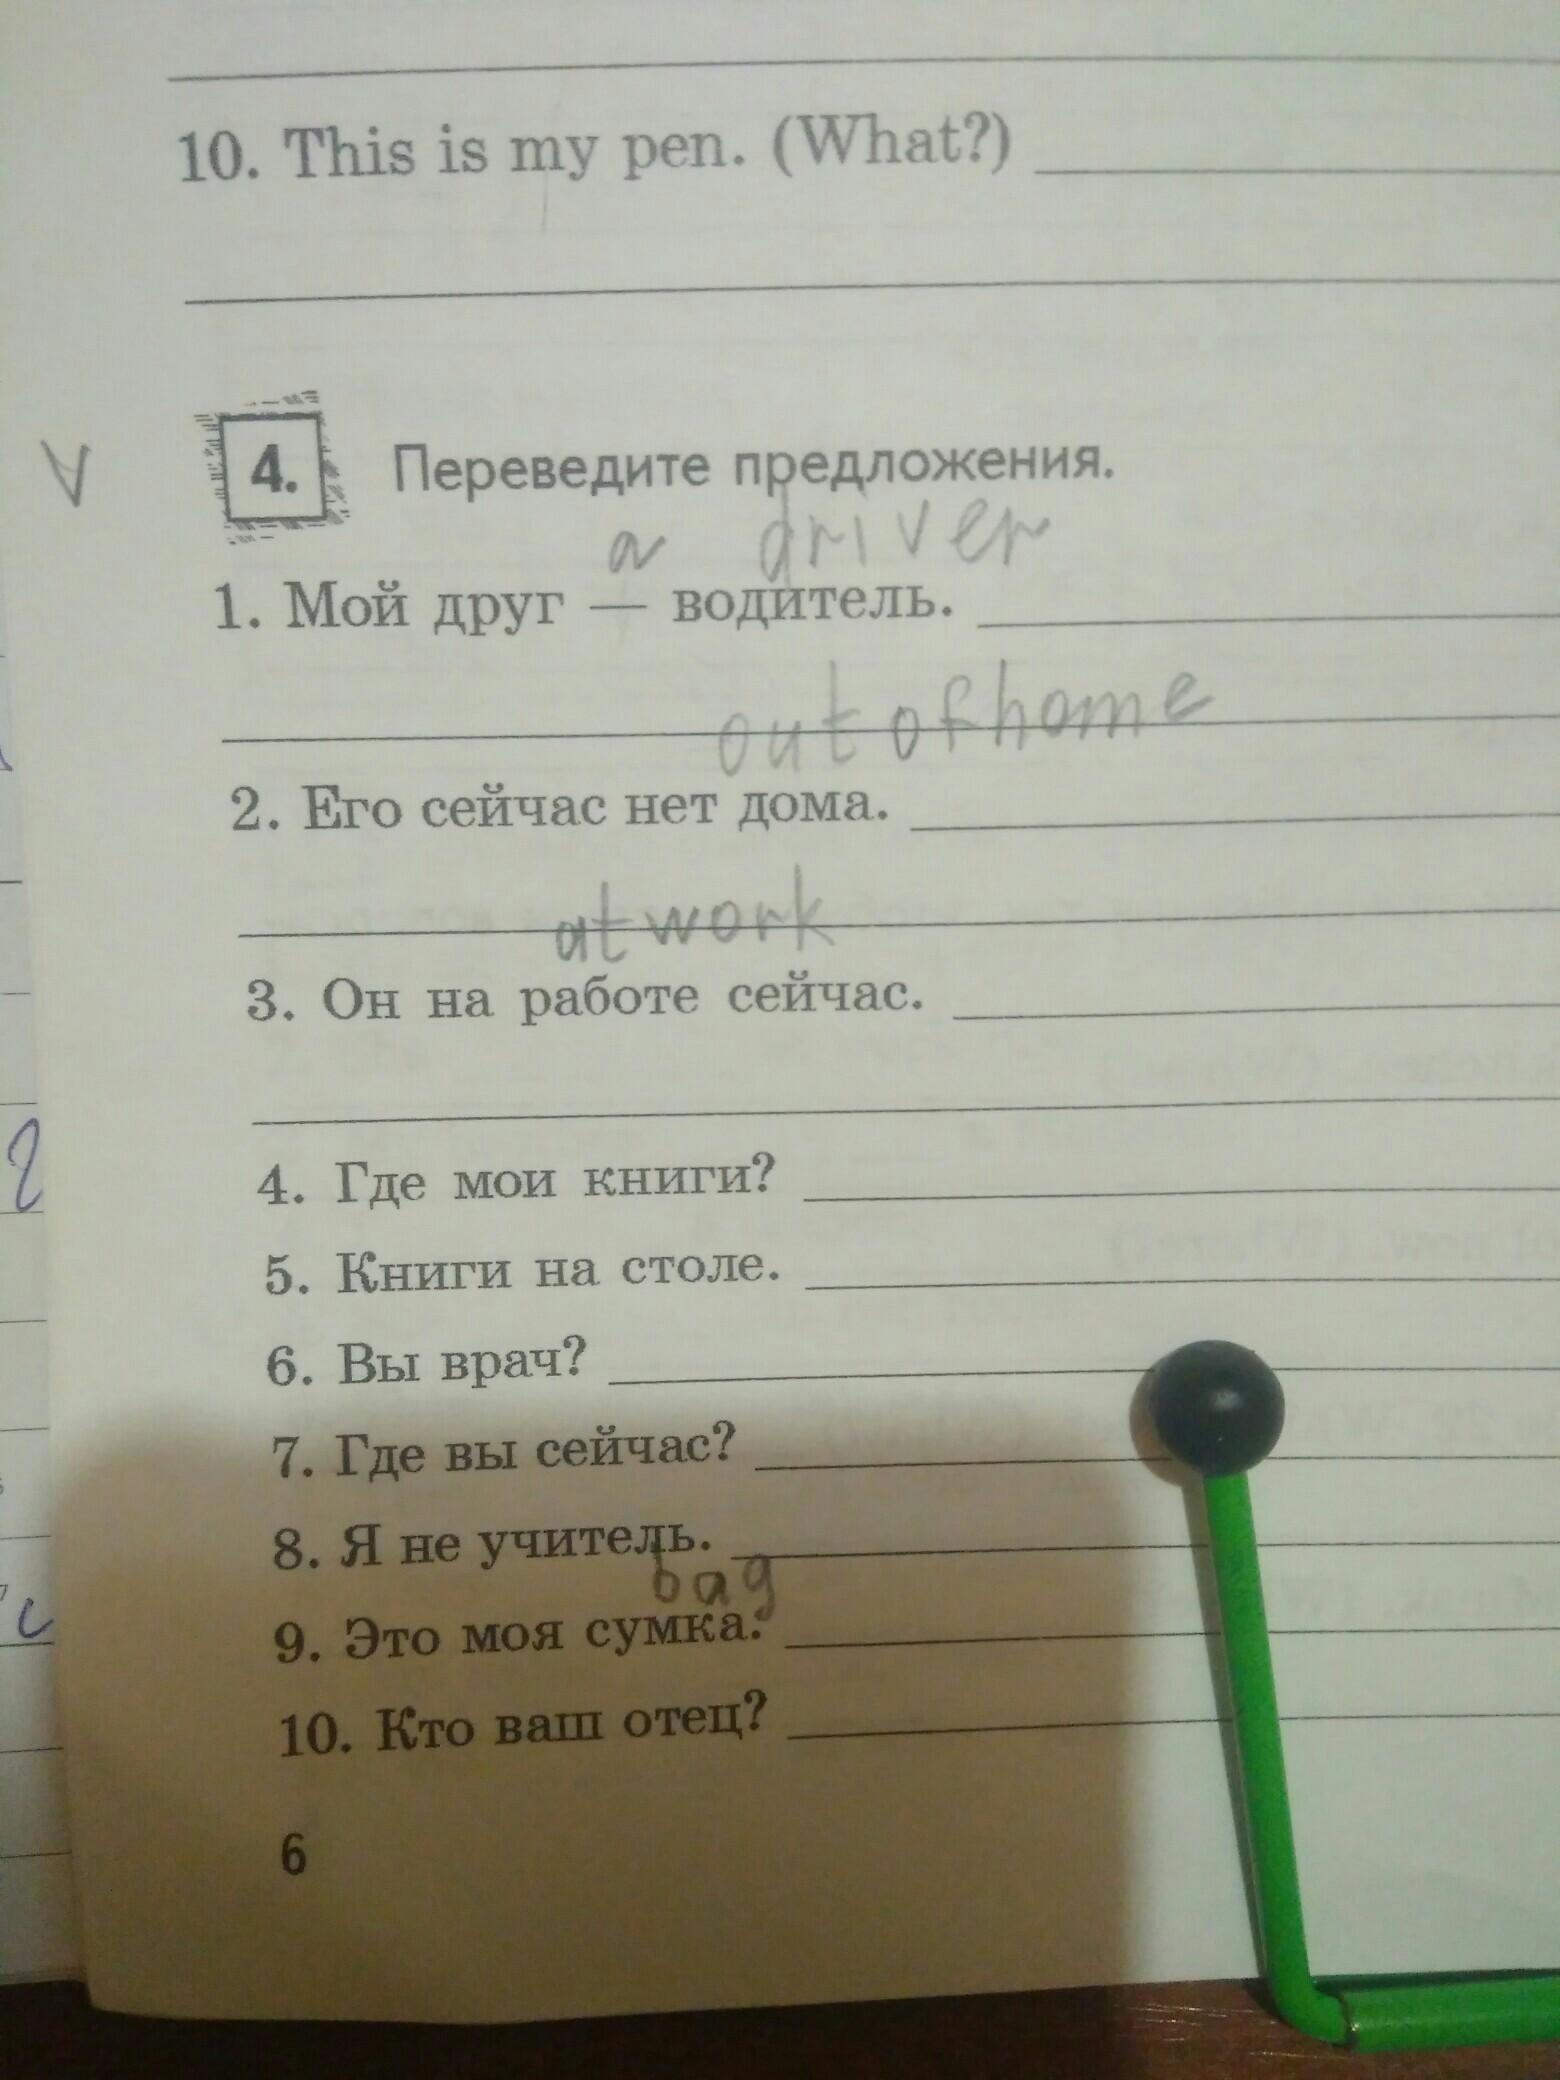 10. This is my pen. (What?)
4. Переведите предложения.
a driver
1. Мой друг — водитель.
out of home
2. Его сейчас нет дома.
at work
3. Он на работе сейчас.
4. Где мои книги?
5. Книги на столе.
6. Вы врач?
7. Где вы сейчас?
8. Я не учитель.
bag
9. Это моя сумка.
10. Кто ваш отец?
6